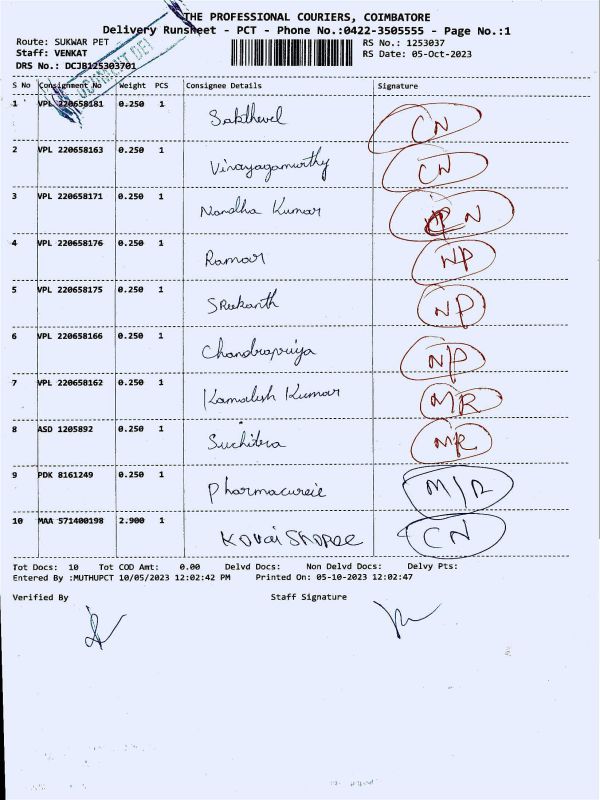 THE PROFESSIONAL COURIERS, COIMBATORE
Delivery Runsheet - PCT - Phone No.:0422-3505555 - Page No.:1
Route: SUKWAR PET RS No.: 1253037
Staff: VENKAT RS Date: 05-Oct-2023
DRS No.: DCJB125303701
S No Consignment No Weight PCS Consignee Details Signature
1 VPL 220658181 0.250 1 Sakthevel CN
2 VPL 220658163 0.250 1 Vinayagamurthy CN
3 VPL 220658171 0.250 1 Nandha Kumar CN
4 VPL 220658176 0.250 1 Ramar NP
5 VPL 220658175 0.250 1 SReekanth NP
6 VPL 220658166 0.250 1 Chandrapriya NP
7 VPL 220658162 0.250 1 Kamalesh Kumar MR
8 ASD 1205892 0.250 1 Suchitra MR
9 PDK 8161249 0.250 1 Pharmacureie M/R
10 MAA 571400198 2.900 1 KOVAI SHOPEE CN
Tot Docs: 10 Tot COD Amt: 0.00 Delvd Docs: Non Delvd Docs: Delvy Pts:
Entered By :MUTHUPCT 10/05/2023 12:02:42 PM Printed On: 05-10-2023 12:02:47
Verified By Staff Signature